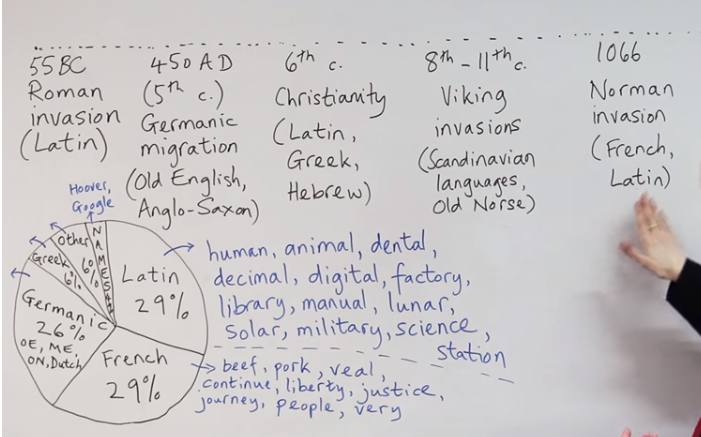 55BC
Roman
invasion
(Latin)
450 AD
(5th c.)
Germanic
migration
(Old English,
Anglo-Saxon)
6th c.
Christianity
(Latin,
Greek,
Hebrew)
8th - 11th c.
Viking
invasions
(Scandinavian
languages,
Old Norse)
1066
Norman
invasion
(French,
Latin)
Hoover,
Google
NAMES 4%
Other
6%
Greek
6%
Latin
29%
Germanic
26%
OE, ME,
ON, Dutch
French
29%
human, animal, dental,
decimal, digital, factory,
library, manual, lunar,
solar, military, science,
station
beef, pork, veal,
continue, liberty, justice,
journey, people, very